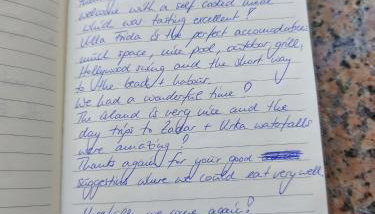 welcome with a self cooked meal
which was tasting excellent!
Villa Frida is the perfect accomodation
much space, nice pool, outdoor grill,
Hollywood swing and the short way
to the beach + harbour.
We had a wonderful time!
The island is very nice and the
day trips to Zadar + Krka waterfalls
were amazing!
Thanks again for your good
suggestions where we could eat very well.
we come again!